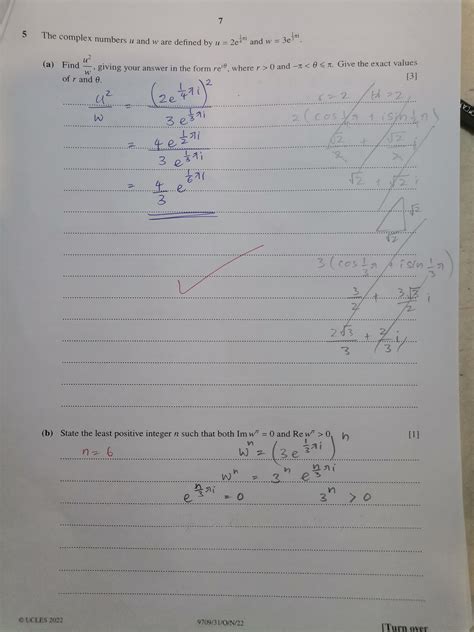 7
5 The complex numbers u and w are defined by u = 2e^{¼πi} and w = 3e^{⅓πi}.
(a) Find u²/w, giving your answer in the form re^{iθ}, where r > 0 and −π < θ ⩽ π. Give the exact values
of r and θ. [3]
u²/w = (2e^{¼πi})² / 3e^{⅓πi}
= 4e^{½πi} / 3e^{⅓πi}
= 4/3 e^{⅙πi}
r = 2
2(cos ¼π + i sin ¼π)
√2/2 + √2/2
√2 + √2 i
√2
√2
3(cos ⅓π + i sin ⅓π)
3/2 + 3√3/2 i
2√3/3 + 2/3 i
(b) State the least positive integer n such that both Im wⁿ = 0 and Re wⁿ > 0. [1]
n = 6
wⁿ = (3e^{⅓πi})ⁿ
wⁿ = 3ⁿ e^{n/3 πi}
e^{n/3 πi} = 0 3ⁿ > 0
© UCLES 2022 9709/31/O/N/22 [Turn over